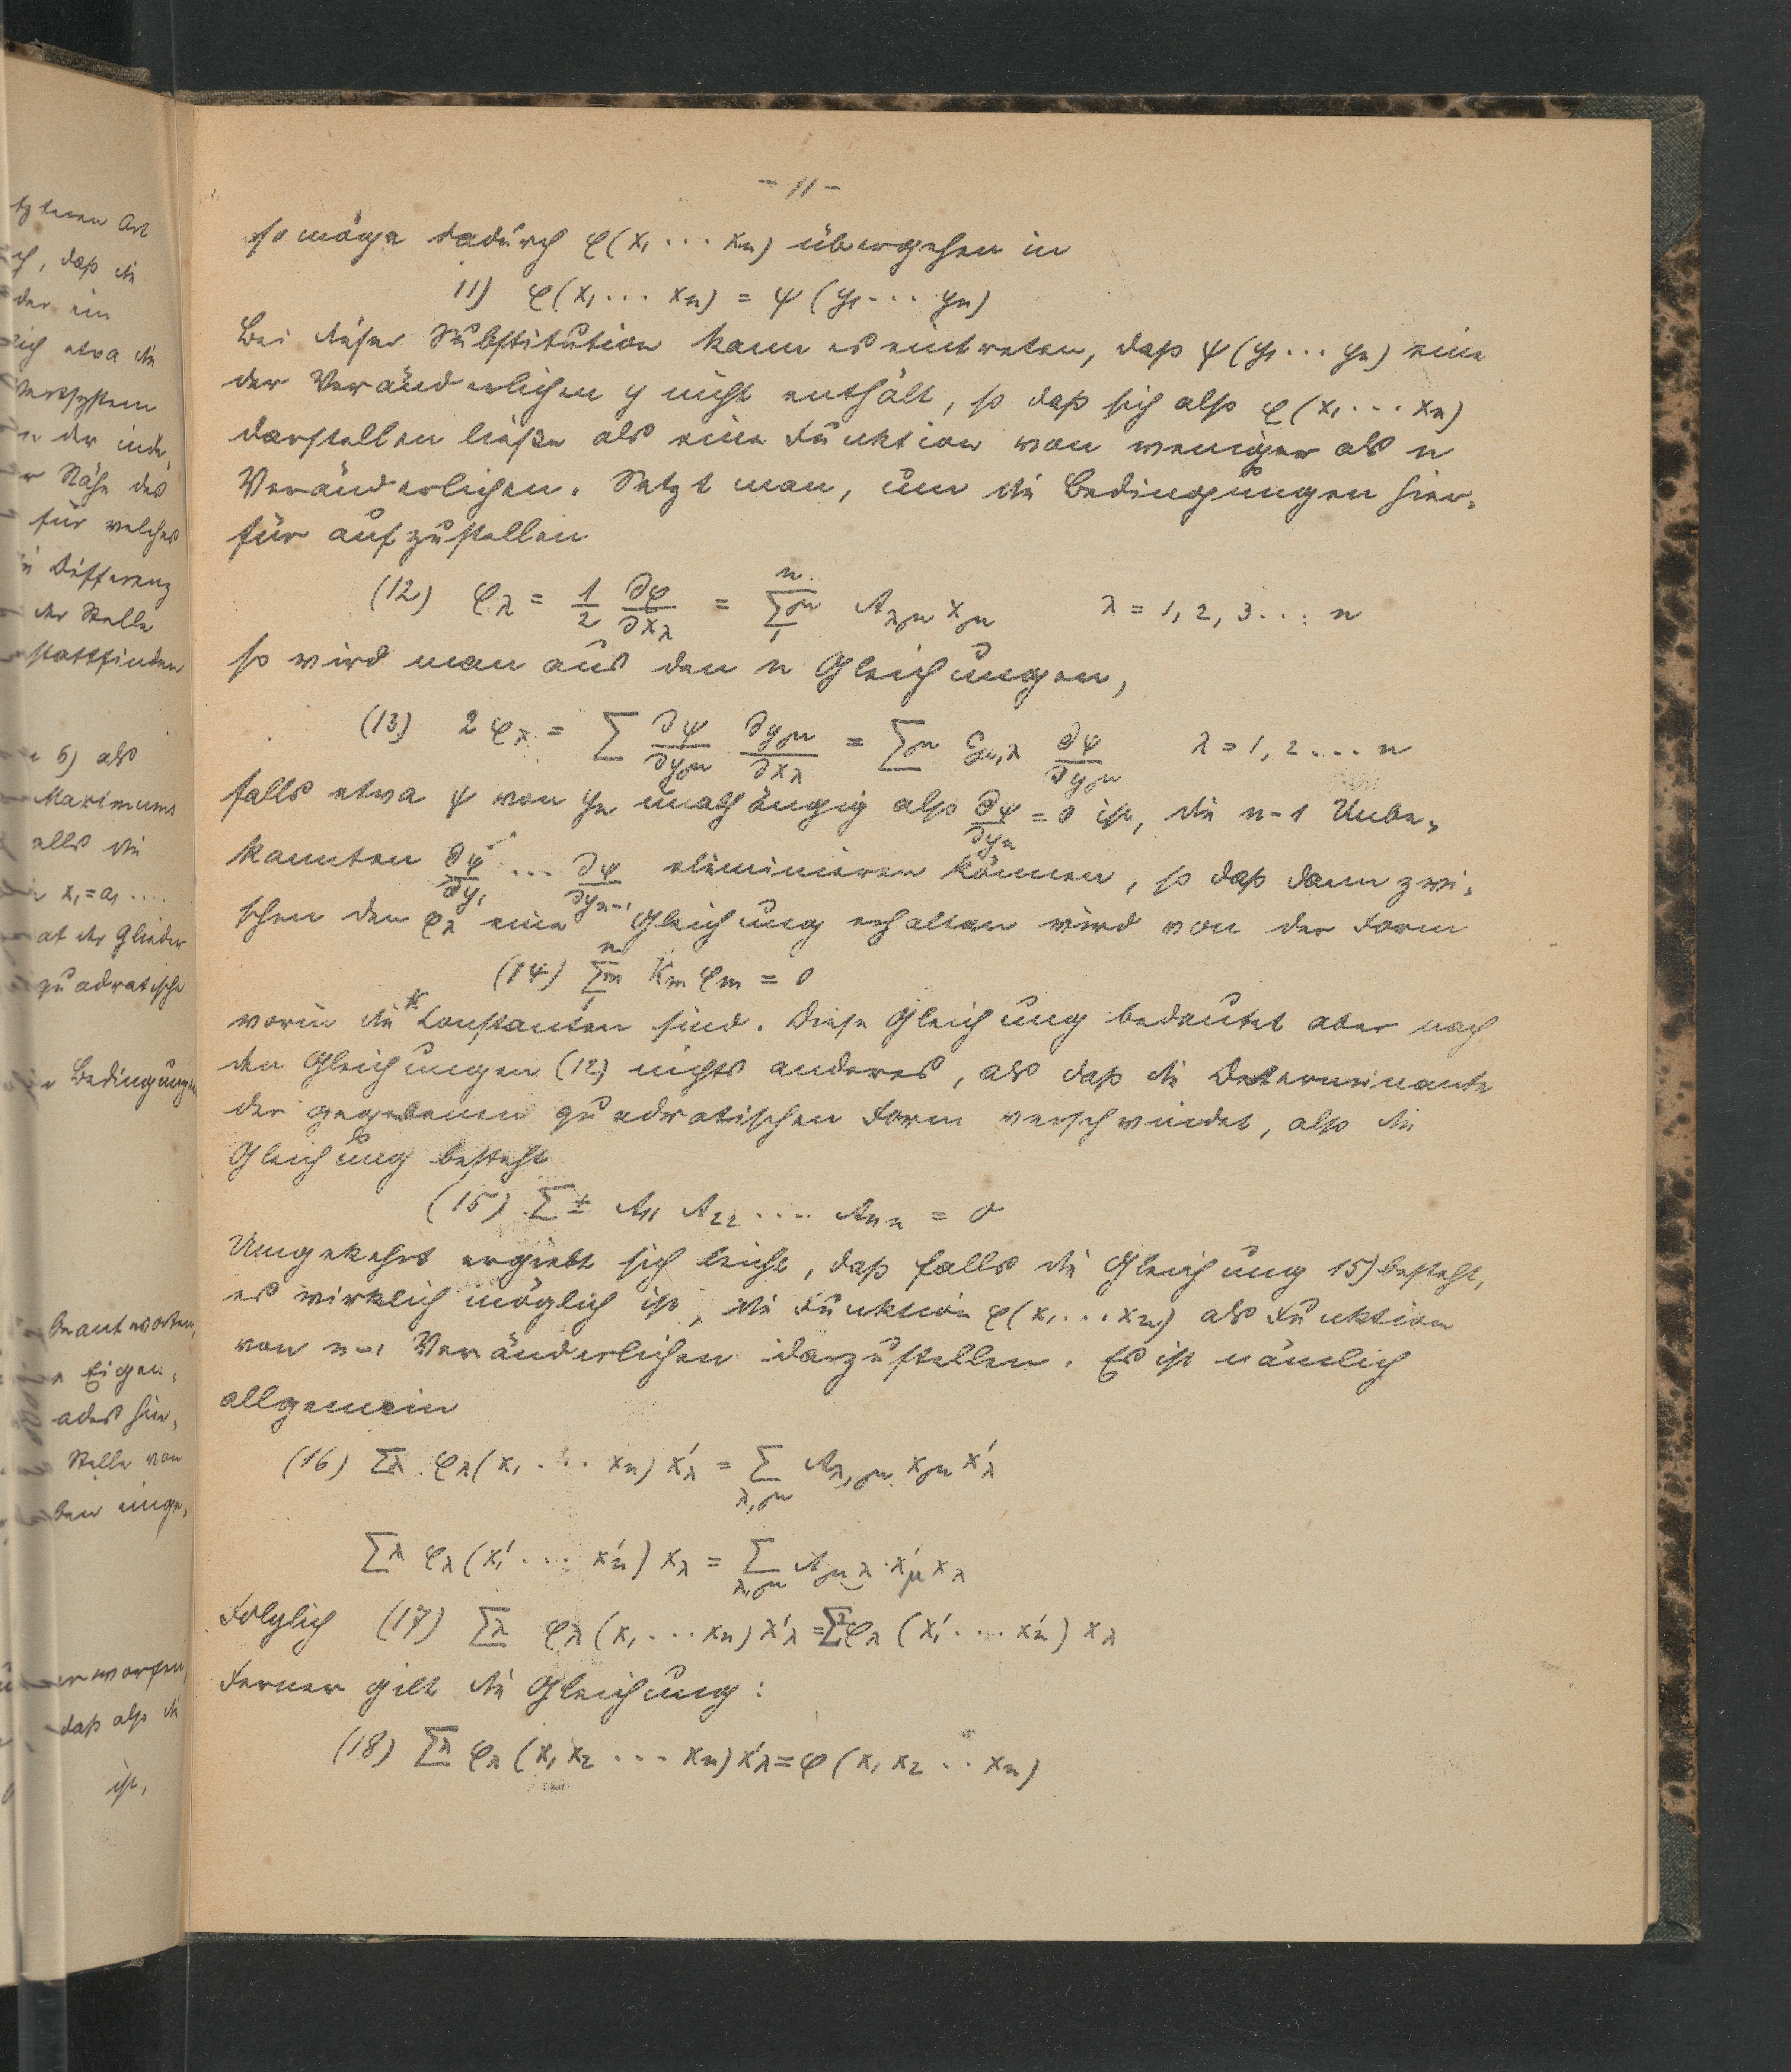 - 11 -
so möge dadurch φ(x₁ ... xₙ) übergehen in
11) φ(x₁ ... xₙ) = ψ(y₁ ... yₙ)
Bei dieser Substitution kann es eintreten, daß ψ(y₁ ... yₙ) eine
der Veränderlichen y nicht enthält, so daß sich also φ(x₁ ... xₙ)
darstellen ließe als eine Funktion von weniger als n
Veränderlichen. Setzt man, um die Bedingungen hier-
für aufzustellen
(12) φ_λ = 1/2 ∂φ/∂x_λ = Σ_1^n μ A_λμ x_μ λ = 1, 2, 3 ... n
so wird man aus den n Gleichungen,
(13) 2φ_λ = Σ ∂ψ/∂y_μ ∂y_μ/∂x_λ = Σμ g_μ,λ ∂ψ/∂y_μ λ = 1, 2 .... n
falls etwa ψ von yₙ unabhängig also ∂ψ/∂yₙ = 0 ist, die n-1 Unbe-
kannten ∂ψ/∂y₁ ... ∂ψ/∂yₙ₋₁ eliminieren können, so daß dann zwi-
schen den φ_λ eine Gleichung erhalten wird von der Form
(14) Σ_1^n m K_m φ_m = 0
worin die K Constanten sind. Diese Gleichung bedeutet aber nach
den Gleichungen (12) nichts anderes, als daß die Determinante
der gegebenen quadratischen Form verschwindet, also die
Gleichung besteht
(15) Σ ± A₁₁ A₂₂ .... Aₙₙ = 0
Umgekehrt ergiebt sich leicht, daß falls die Gleichung 15) besteht,
es wirklich möglich ist, die Funktion φ(x₁ ... xₙ) als Funktion
von n-1 Veränderlichen darzustellen. Es ist nämlich
allgemein
(16) Σλ φ_λ(x₁ ... xₙ) x'_λ = Σ_λ,μ A_λ,μ x_μ x'_λ
Σλ φ_λ(x'₁ ... x'ₙ) x_λ = Σ_λ,μ A_μλ x'_μ x_λ
Folglich (17) Σλ φ_λ(x₁ ... xₙ) x'_λ = Σλ φ_λ(x'₁ ... x'ₙ) x_λ
Ferner gilt die Gleichung:
(18) Σλ φ_λ(x₁ x₂ ... xₙ) x'_λ = φ(x₁ x₂ .. xₙ)